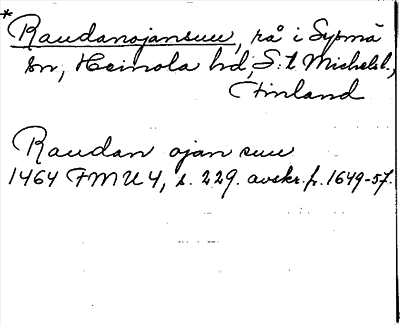 *Raudanojansuu, rå i Sysmä
sn, Heinola hd, S:t Michels l.,
Finland
Raudan ojan suu
1464 FMU 4, s. 229. avskr. fr. 1649-57.